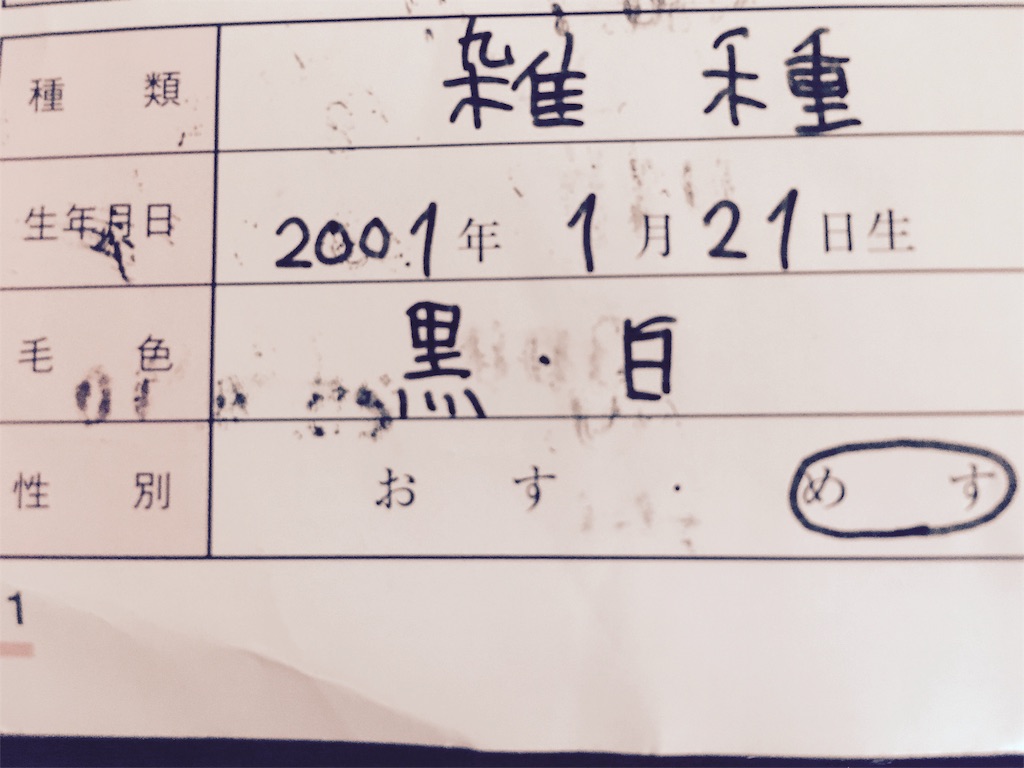 種類 雑種
生年月日 2001年 1月21日生
毛色 黒・白
性別 おす・めす
1